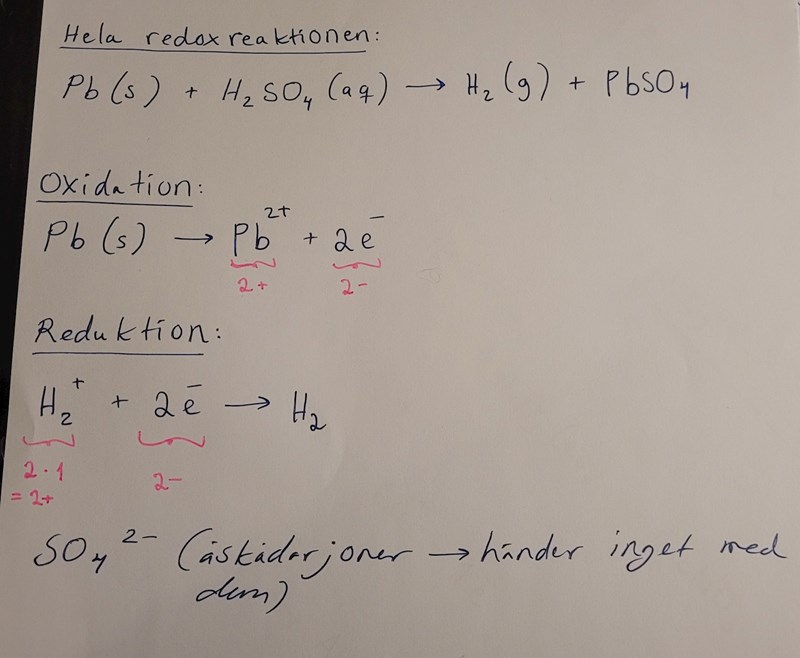 Hela redoxreaktionen:
Pb(s) + H₂SO₄(aq) → H₂(g) + PbSO₄
Oxidation:
Pb(s) → Pb²⁺ + 2e⁻
2+ 2-
Reduktion:
H₂⁺ + 2e⁻ → H₂
2·1 2-
= 2+
SO₄²⁻ (åskådarjoner → händer inget med
dem)